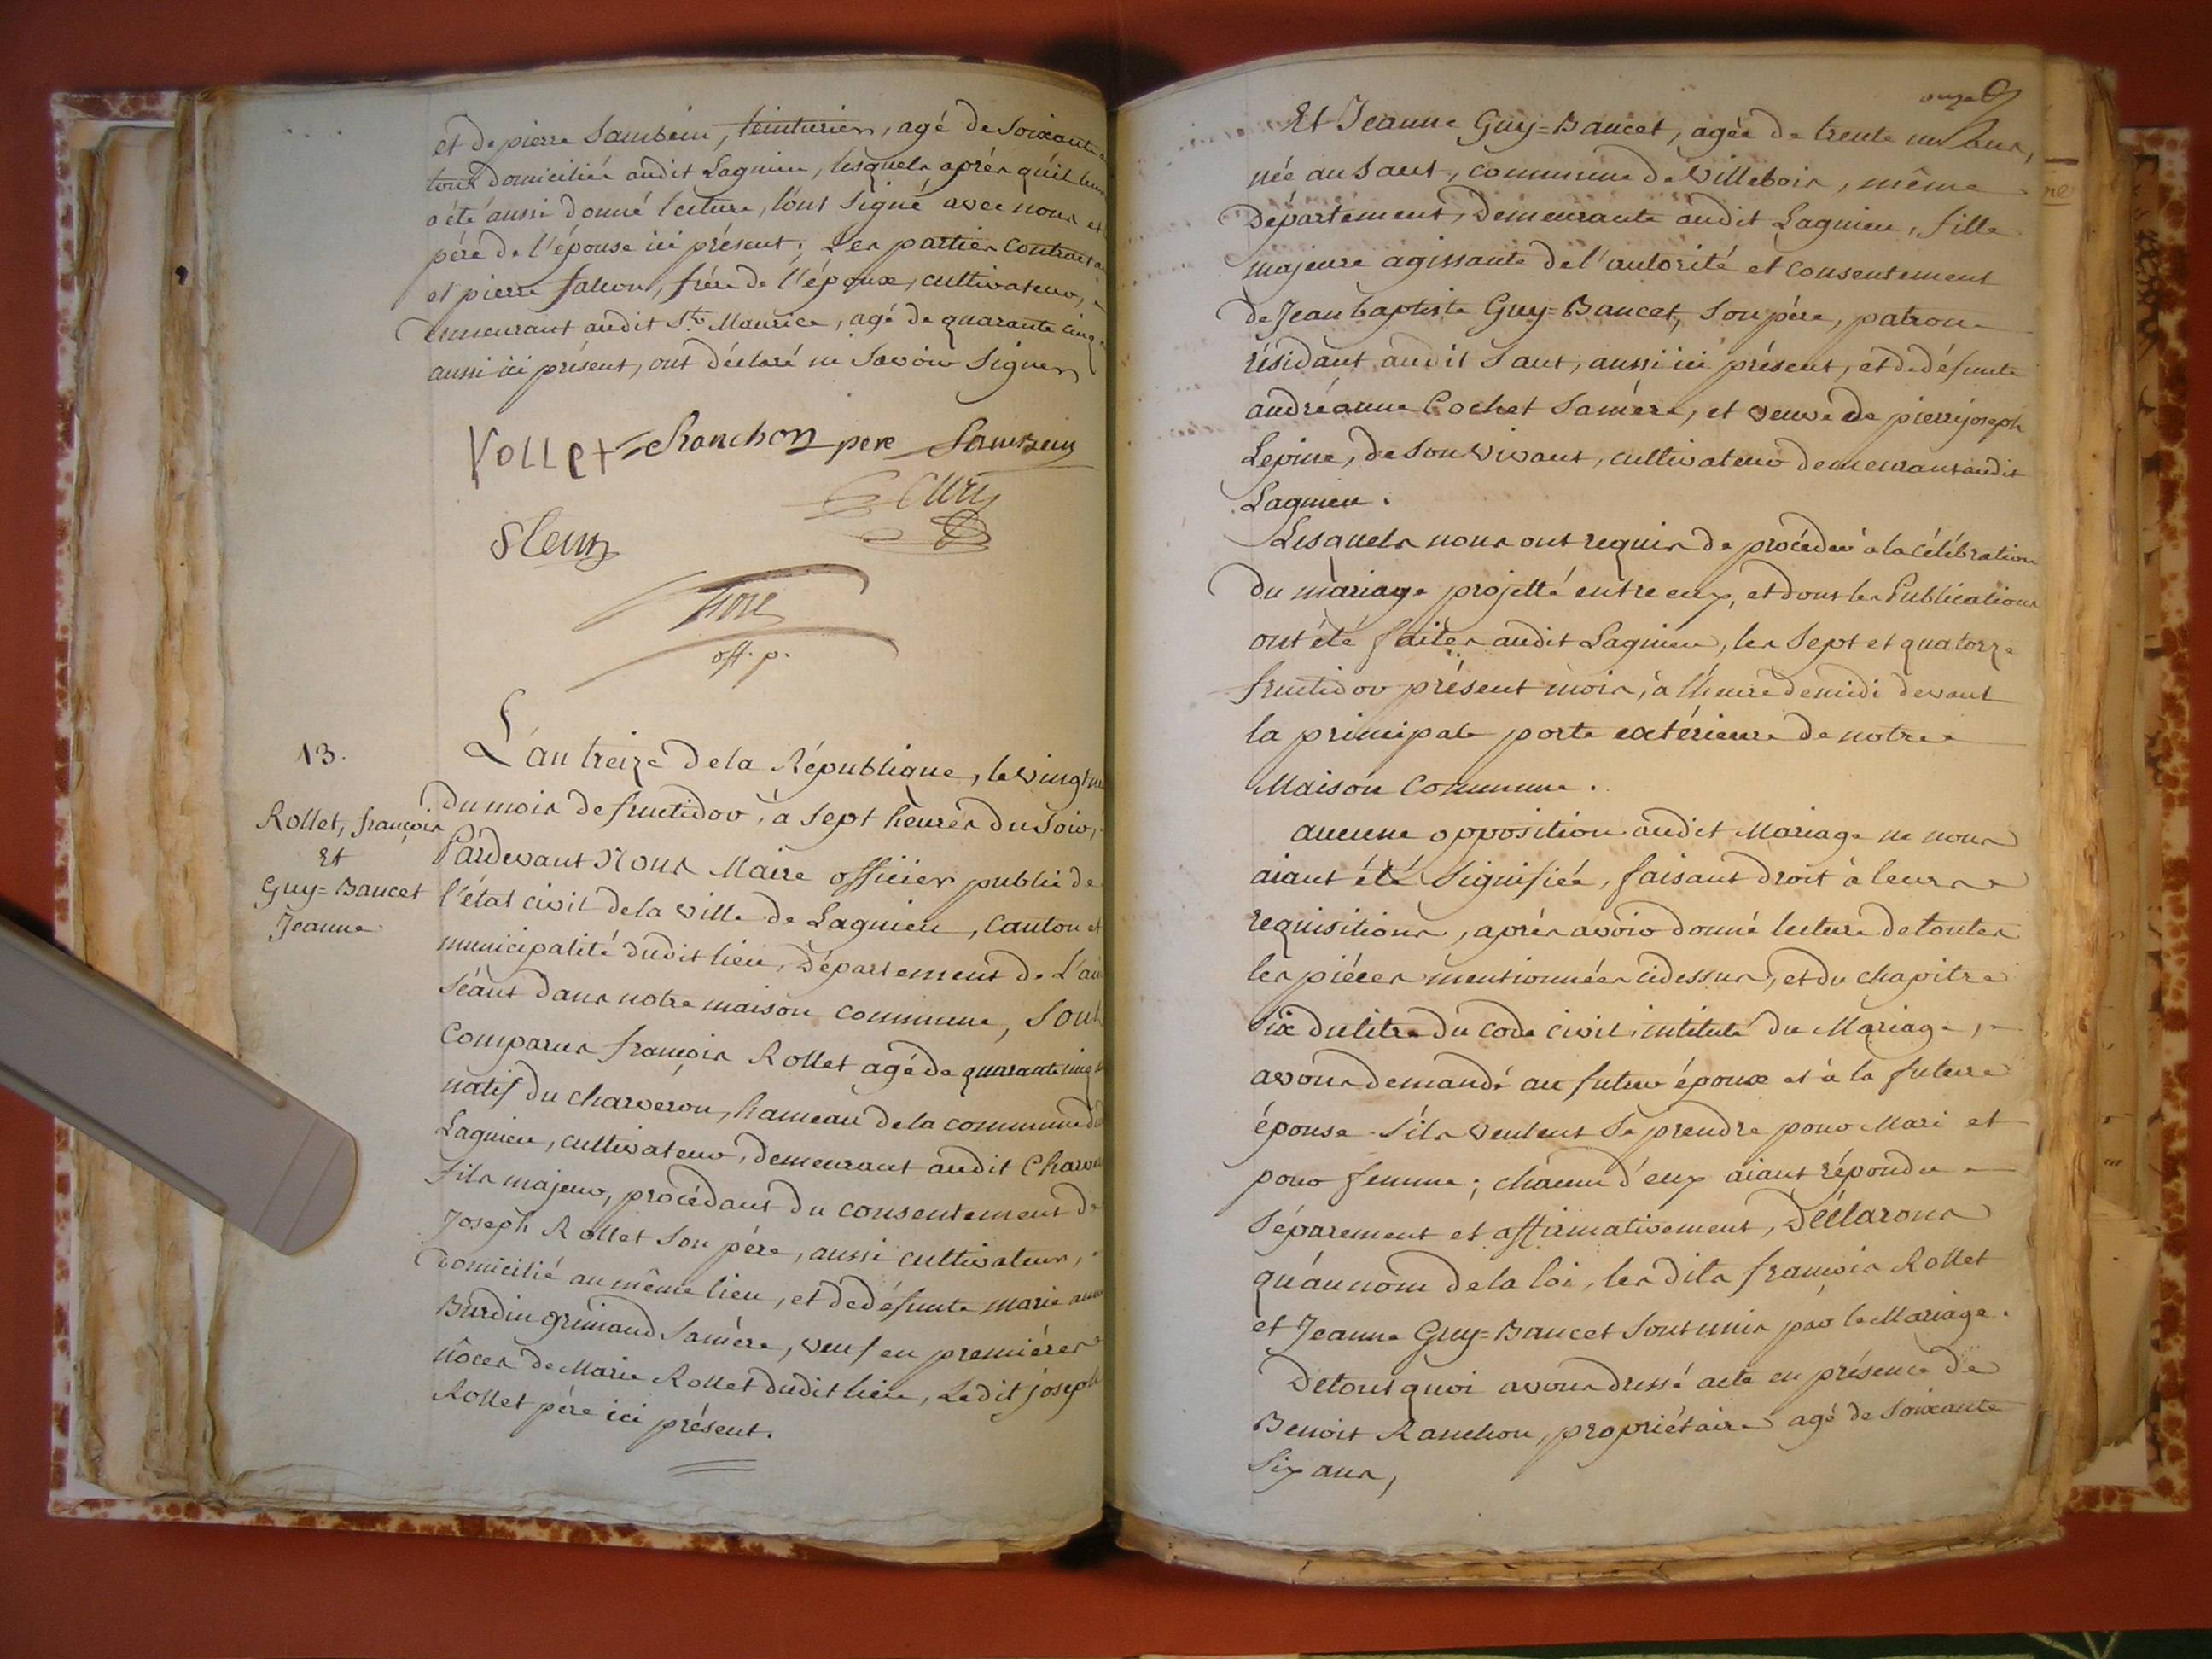 et de pierre Sambein, teinturier, agé de Soixante
tous domiciliés audit Lagnieu, lesquels après qu'il leur
a été aussi donné lecture, l'ont signé avec nous et
père de l'épouse ici présent; Les parties contract
et pierre falcon, frère de l'époux, cultivateur,
demeurant audit St. Maurice, agé de quarante cinq
aussi ici présent, ont déclaré ne Savoir Signer
Vollet Franchon pere Sambein
off. p.
13.
Rollet, françois
Et
Guy=Baucet
Jeanne
L'an treize de la République, le vingt
du mois de fructidor, à sept heures du Soir,
Pardevant Nous Maire officier public de
l'état civil de la ville de Lagnieu, canton et
municipalité dudit lieu, département de L'ain
séant dans notre maison commune, Sont
Comparus françois Rollet agé de quarante cinq
natif du charveron, hameau de la commune de
Lagnieu, cultivateur, demeurant audit Charve
fils majeur, procédant du consentement de
Joseph Rollet Son père, aussi cultivateur,
domicilié au même lieu, et de défunte marie anne
Burdin grimaud Sa mère, veuf en premières
nôces de Marie Rollet dudit lieu, Ledit joseph
Rollet père ici présent.
onze
Et Jeanne Guy=Baucet, agée de trente un ans,
née au Saut, commune de Villebois, même
département, demeurante audit Lagnieu, fille
majeure agissante de l'autorité et consentement
de Jean baptiste Guy=Baucet, Son père, patron
résidant audit Saut, aussi ici présent, et de défunte
andréanne Cochet Sa mère, et veuve de pierre joseph
Lepine, de Son vivant, cultivateur demeurant audit
Lagnieu.
Lesquels nous ont requis de procéder à la célébration
du mariage projetté entre eux, et dont les Publications
ont été faites audit Lagnieu, les Sept et quatorze
fructidor présent mois, à l'heure de midi devant
la principale porte extérieure de notre
Maison Commune.
aucune opposition audit Mariage ne nous
aiant été Signifiée, faisant droit à leurs
requisitions, après avoir donné lecture de toutes
les pièces mentionnées cidessus, et du chapitre
Six du titre du code civil intitulé du Mariage,
avons demandé au futur époux et à la future
épouse s'ils veulent Se prendre pour Mari et
pour femme; chacun d'eux aiant répondu
Séparement et affirmativement, Déclarons
qu'au nom de la loi, les dits françois Rollet
et Jeanne Guy=Baucet Sont unis par le Mariage.
De tout quoi avons dressé acte en présence de
Benoit Ranchon, propriétaire agé de Soixante
Six ans,